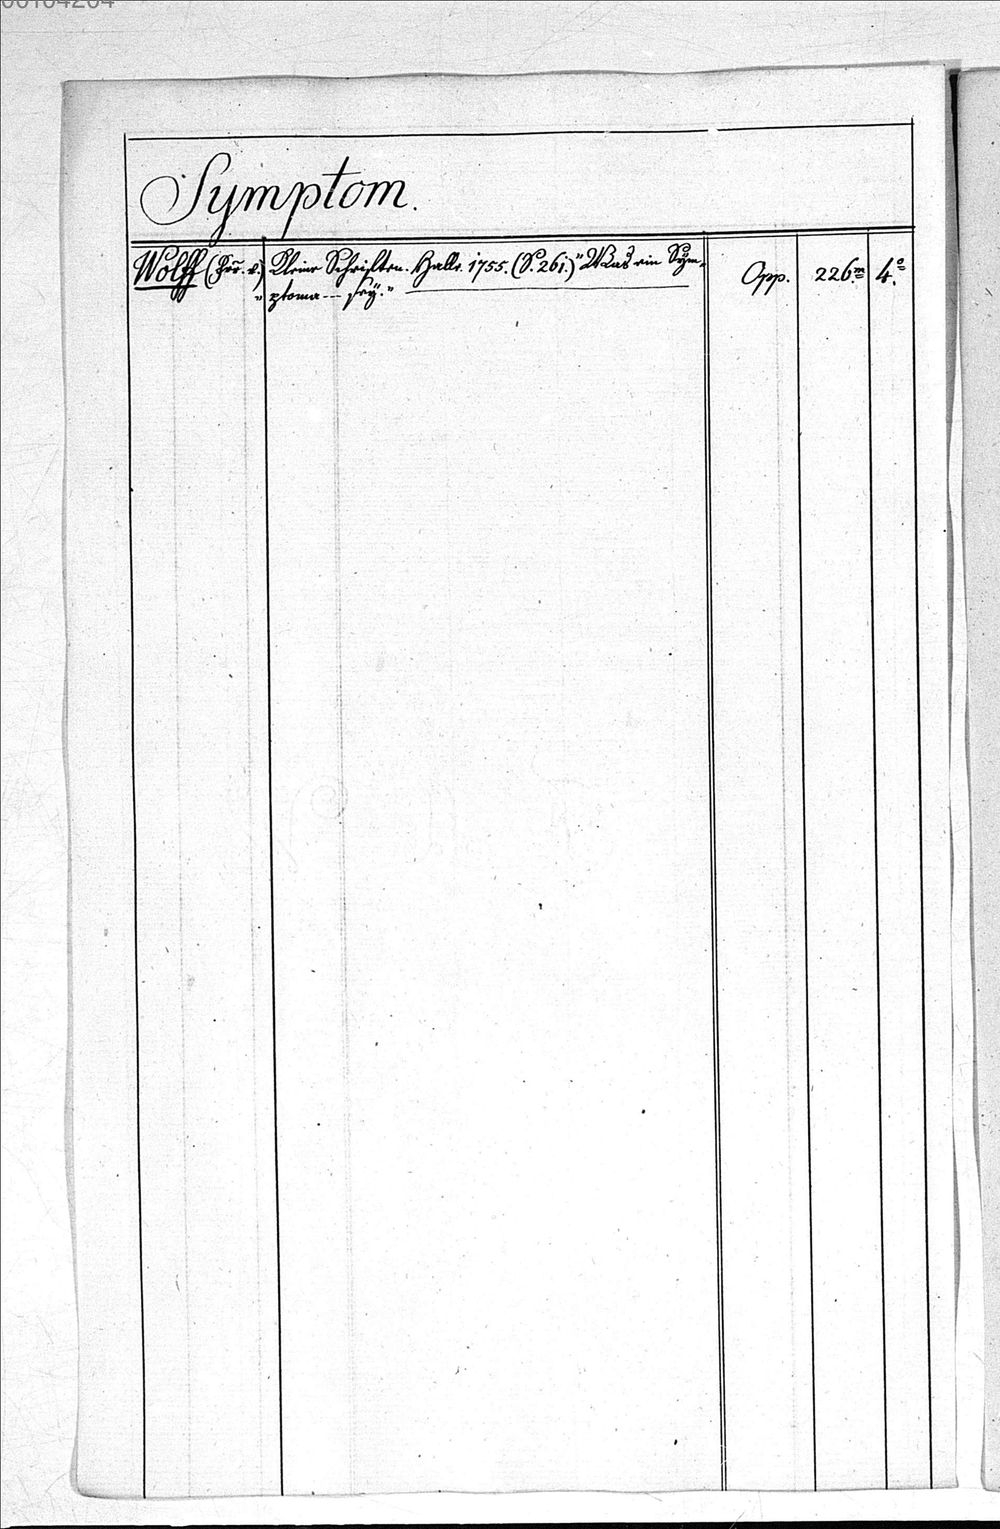 Symptom.
Wolff (Chr. v.) Kleine Schriften. Halle. 1755. (S. 261.) "Was ein Sym- Opp. 226.m 4.o
"ptoma --- sey."